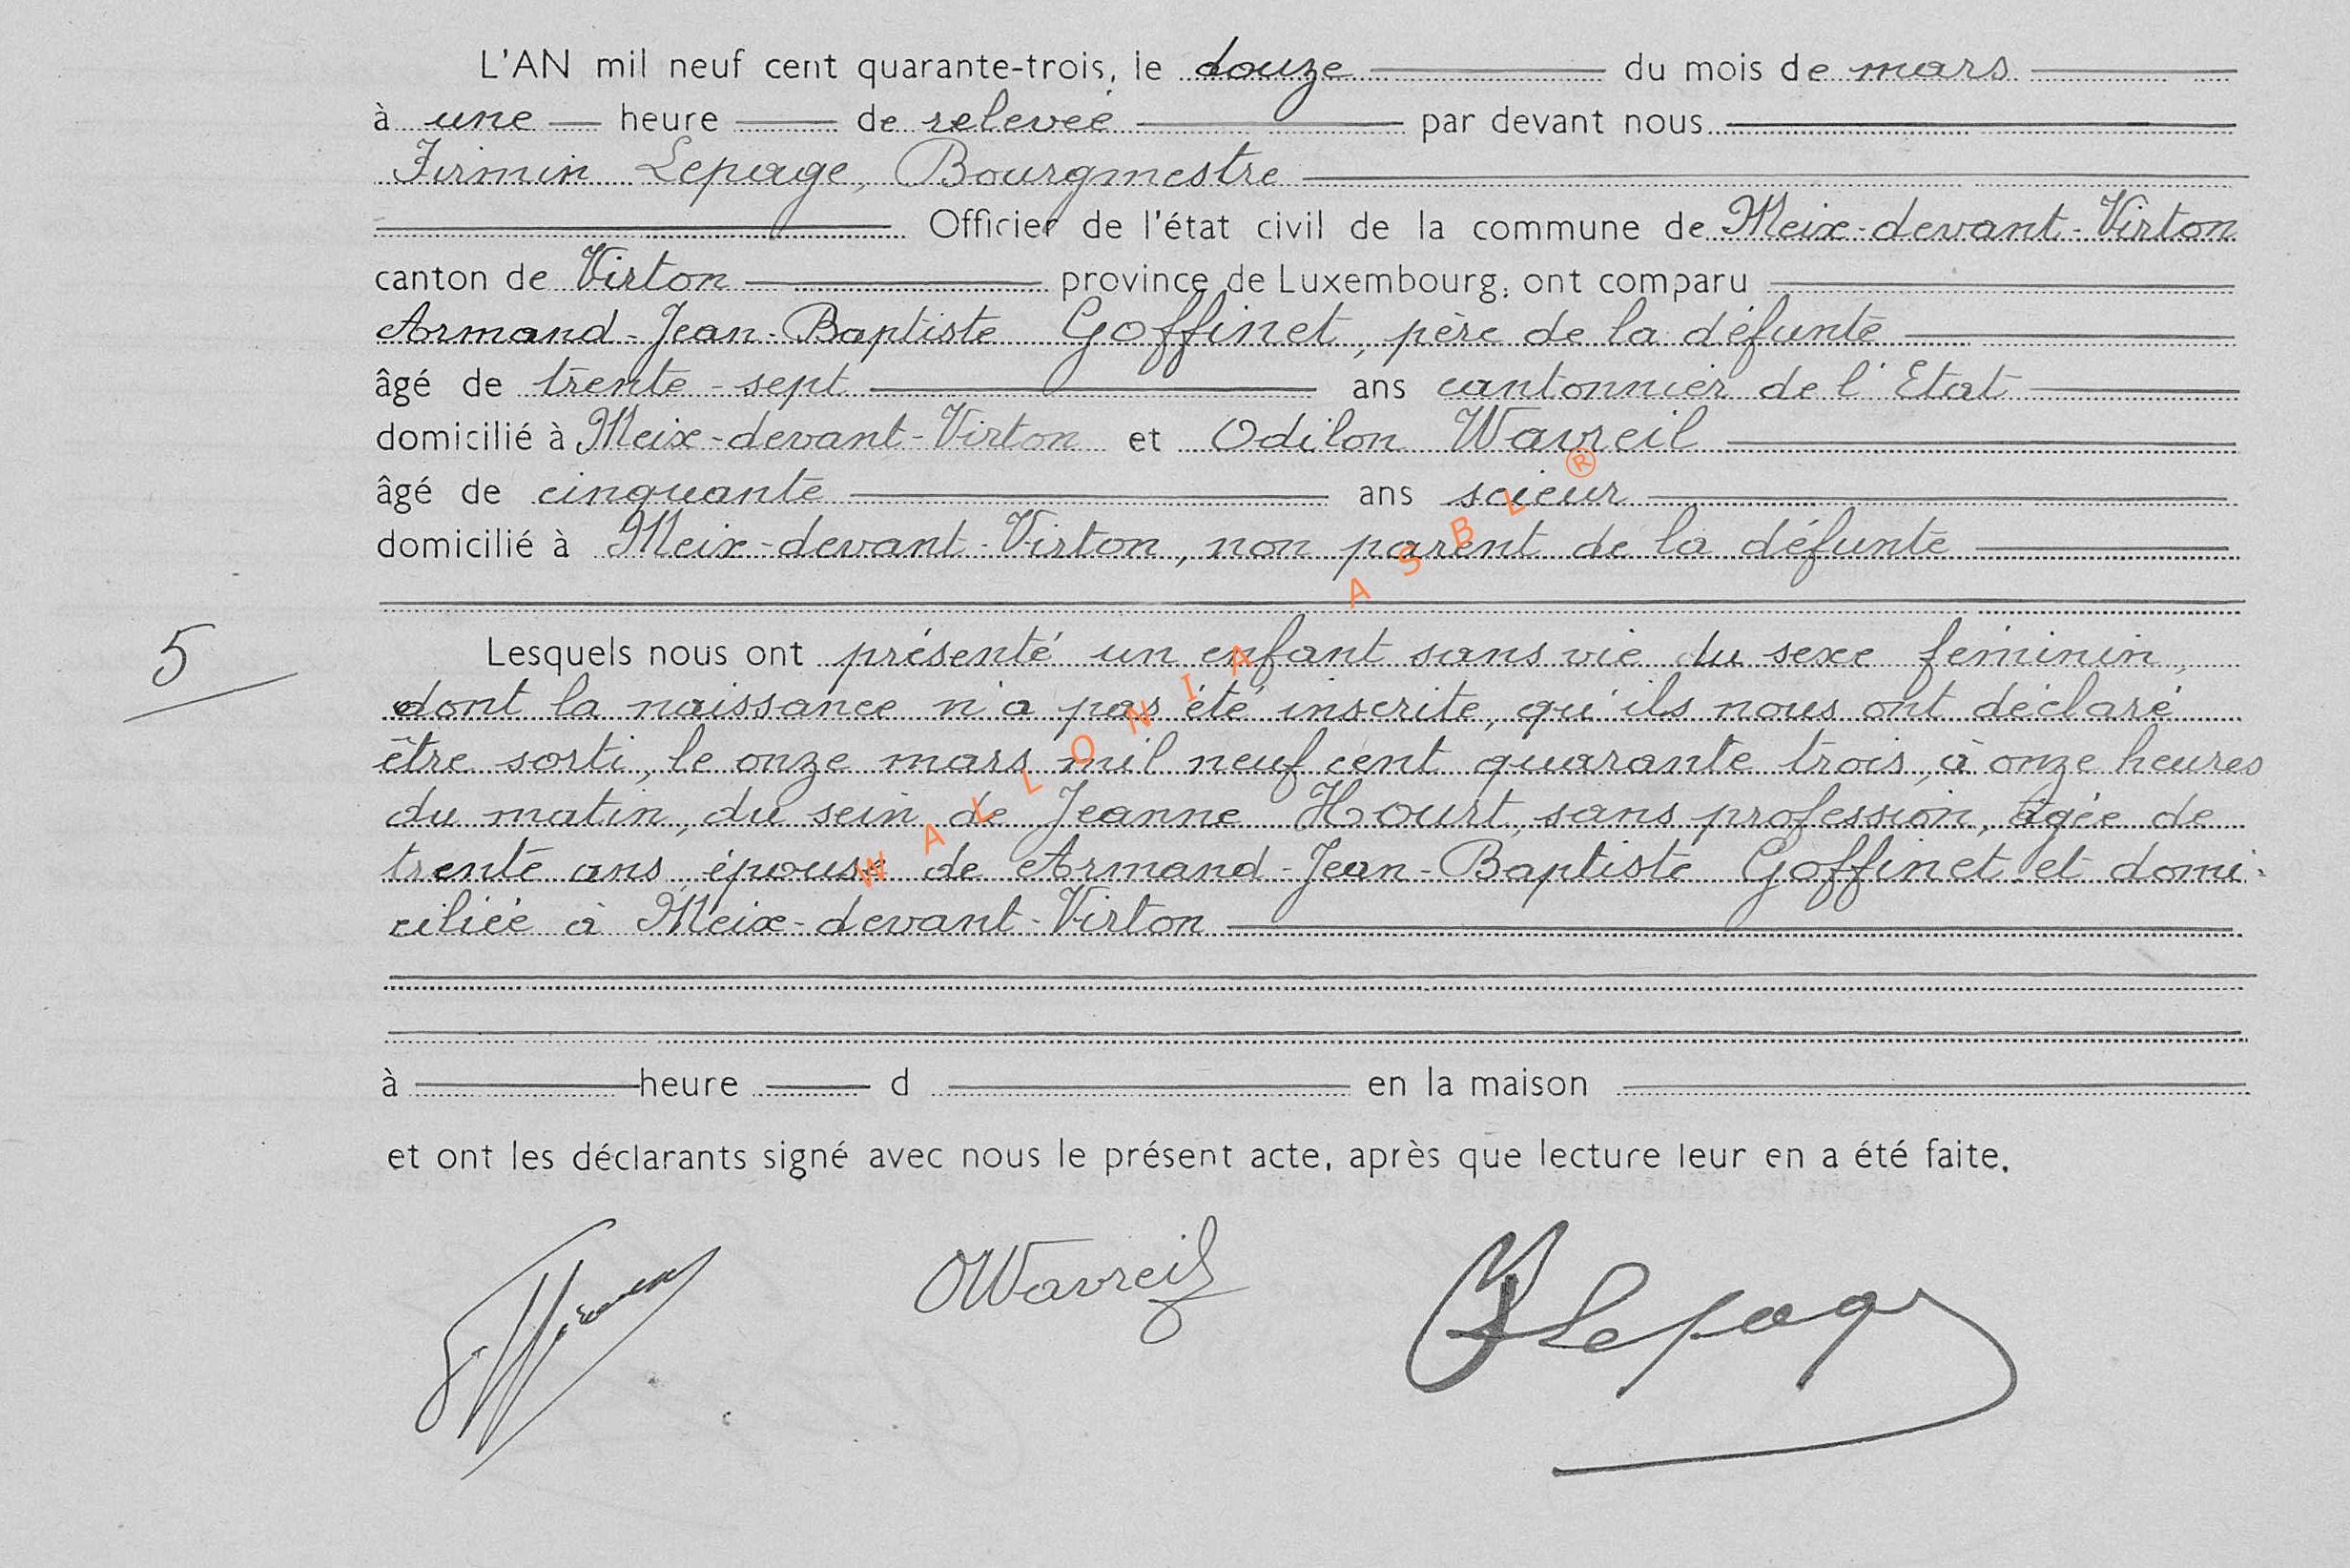 L'AN mil neuf cent quarante-trois, le douze du mois de mars
à une heure de relevée par devant nous
Firmin Lepage, Bourgmestre
Officier de l'état civil de la commune de Meix-devant-Virton
canton de Virton province de Luxembourg, ont comparu
Armand-Jean-Baptiste Goffinet, père de la défunte
âgé de trente-sept ans cantonnier de l'Etat
domicilié à Meix-devant-Virton et Odilon Wavreil
âgé de cinquante ans scieur
domicilié à Meix-devant-Virton, non parent de la défunte
5
Lesquels nous ont présenté un enfant sans vie du sexe féminin,
dont la naissance n'a pas été inscrite, qu'ils nous ont déclaré
être sorti, le onze mars mil neuf cent quarante trois, à onze heures
du matin, du sein de Jeanne Hourt, sans profession, âgée de
trente ans, épouse de Armand-Jean-Baptiste Goffinet et domi-
ciliée à Meix-devant-Virton
à heure d en la maison
et ont les déclarants signé avec nous le présent acte, après que lecture leur en a été faite.
Goffinet OWavreil FLepage
WALLONIA ASBL ®